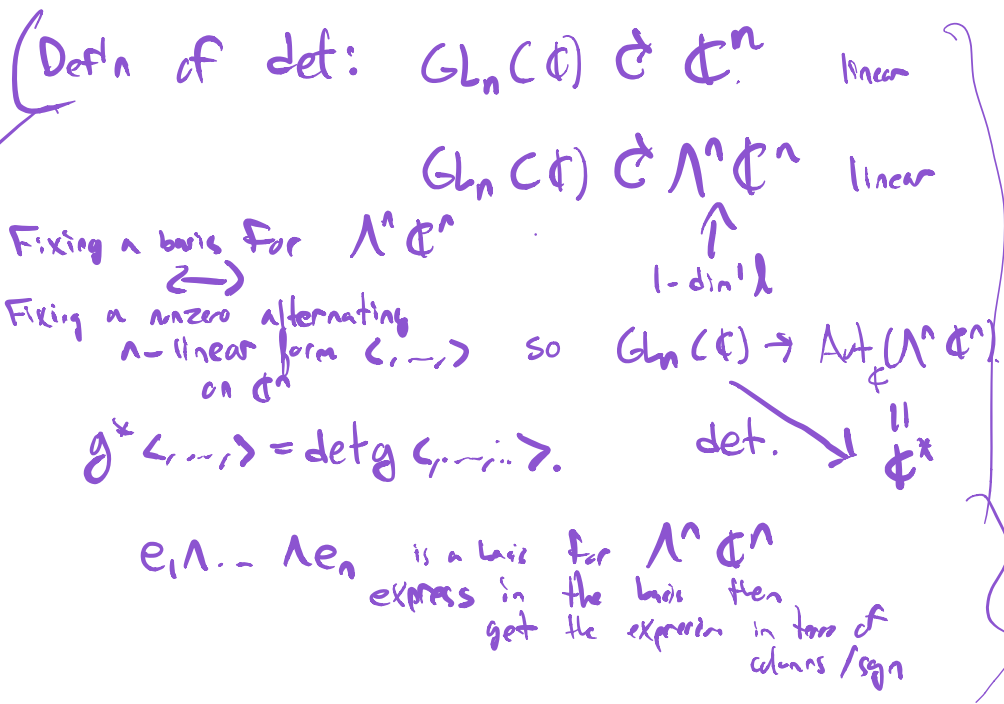 (Def'n of det: GLₙ(ℂ) ↻ ℂⁿ linear
GLₙ(ℂ) ↻ Λⁿ ℂⁿ linear
↑
1-dim'l
Fixing a basis for Λⁿ ℂⁿ
↔
Fixing a nonzero alternating
n-linear form <,...,>
on ℂⁿ
so GLₙ(ℂ) → Aut_ℂ(Λⁿ ℂⁿ)
det. ↘ ॥ ℂ*
g* <,...,> = det g <,...,>.
e₁∧... ∧eₙ is a basis for Λⁿ ℂⁿ
express in the basis then
get the expression in terms of
columns/sgn